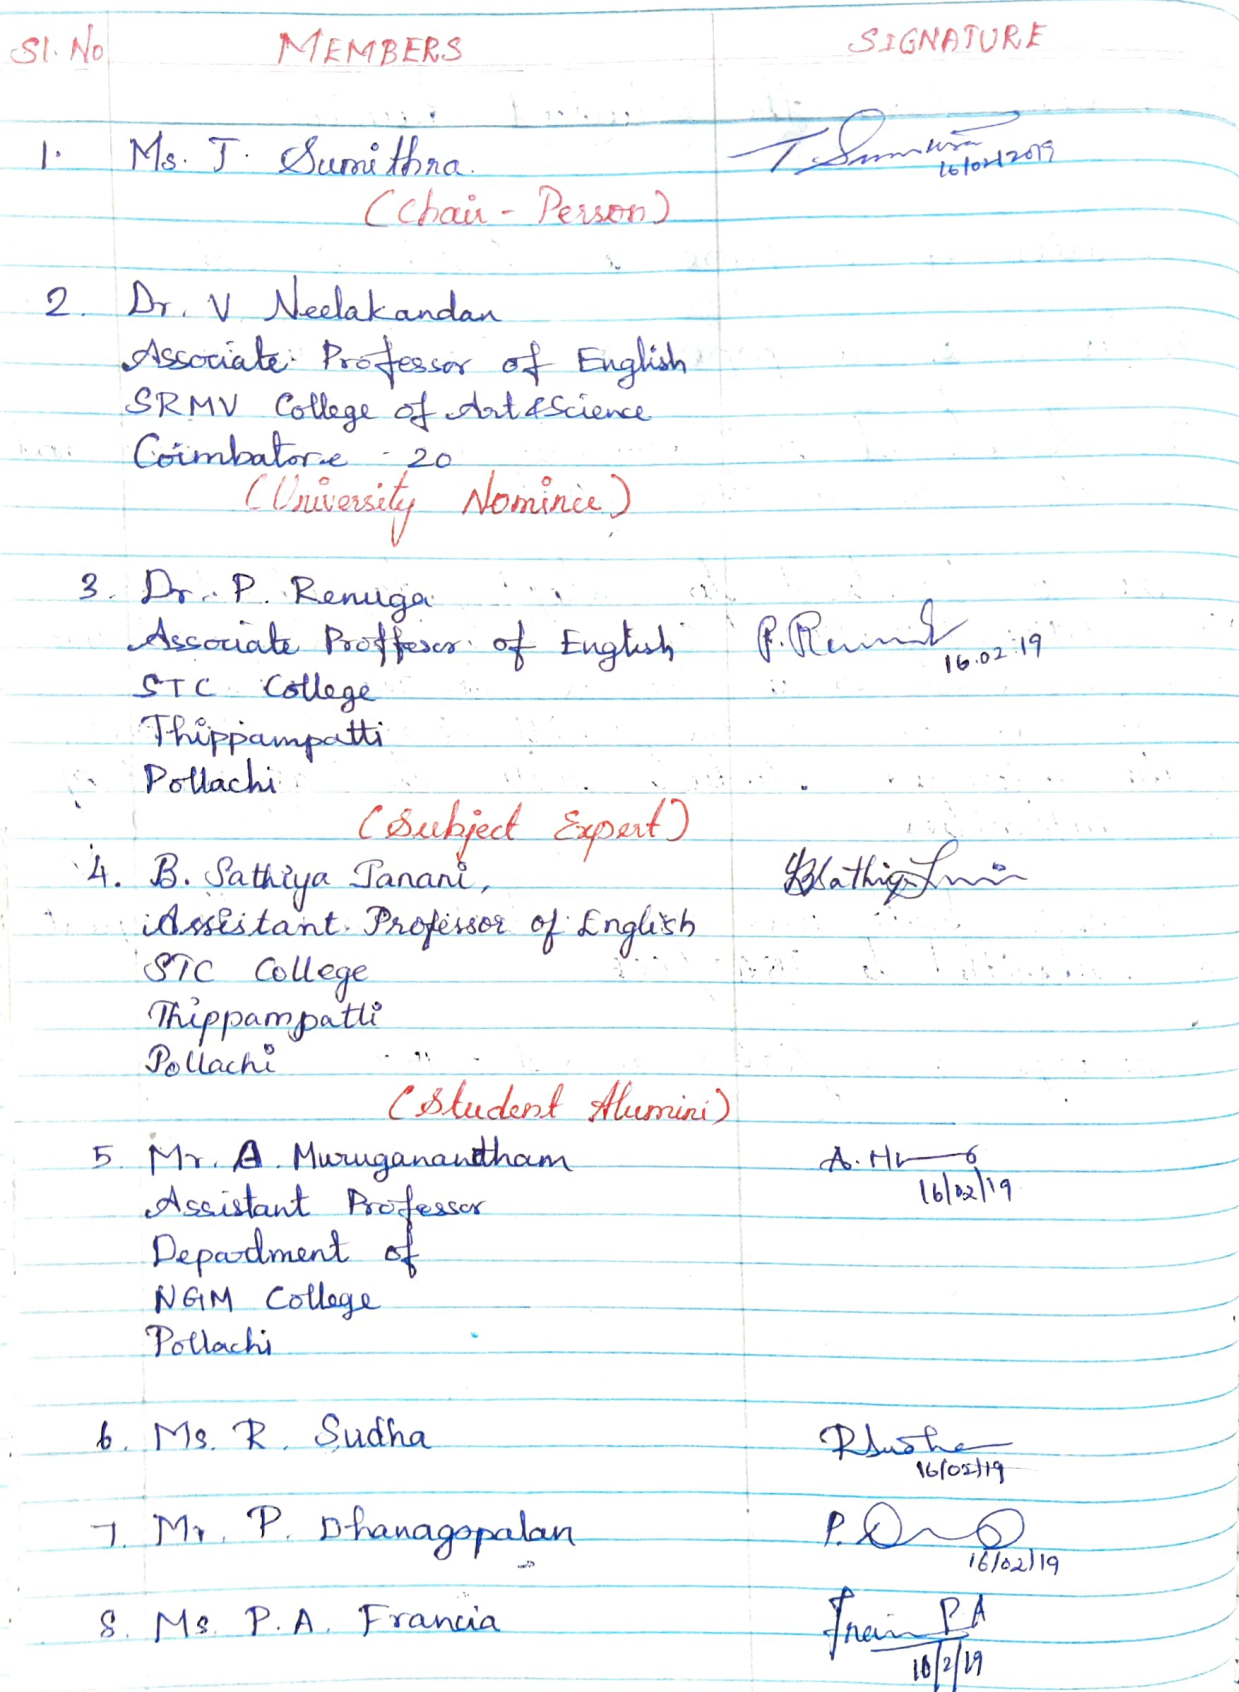 Sl. No MEMBERS SIGNATURE
1. Ms. T. Sumithra. T. Sumithra
16/02/2019
(Chair - Person)
2. Dr. V Neelakandan
Associate Professor of English
SRMV College of Art & Science
Coimbatore - 20
(University Nominee)
3. Dr. P. Renuga
Associate Proffesor of English P. Renu
16.02.19
STC College
Thippampatti
Pollachi
(Subject Expert)
4. B. Sathiya Janani,
Assistant Professor of English
STC College
Thippampatti
Pollachi
(Student Alumini)
5. Mr. A. Muruganandtham A.
16/02/19
Assistant Professor
Department of
NGM College
Pollachi
6. Ms. R. Sudha R Sudha
16/02/19
7. Mr. P. Dhanagopalan P.
16/02/19
8. Ms. P.A. Francia P A
16/2/19